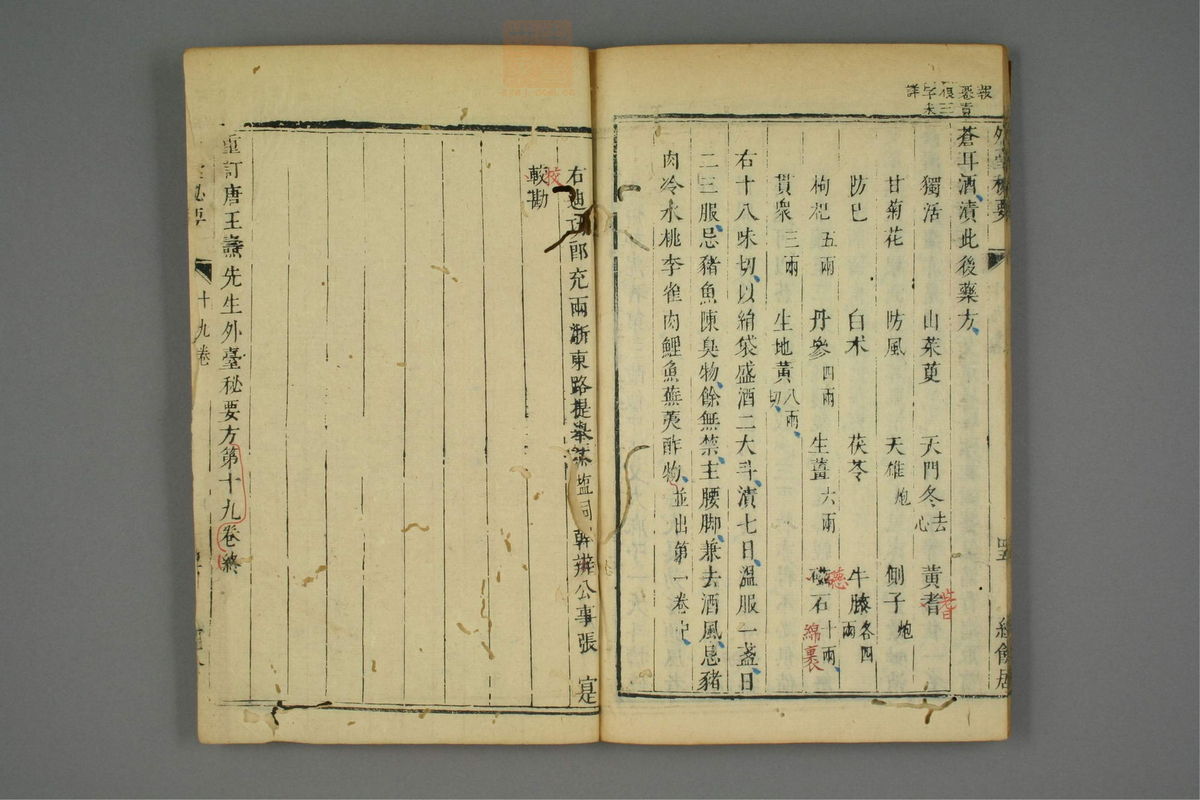 外臺秘要
蒼耳酒漬此後藥方
獨活 山茱萸 天門冬去心 黃耆
甘菊花 防風 天雄炮 側子炮
防巳 白术 茯苓 牛膝各四兩
枸杞五兩 丹參四兩 生薑六兩 石十兩
綿裹
貫衆三兩 生地黃八兩切
右十八味切以絹袋盛酒二大斗漬七日溫服一盞日
二三服忌豬魚陳臭物餘無禁主腰脚兼去酒風忌豬
肉冷水桃李雀肉鯉魚蕪荑酢物並出第一卷中
右迪功郎充兩浙東路提舉茶鹽司幹辦公事張 寔
校
較勘
重訂唐王燾先生外臺秘要方第十九卷終
秘要 十九卷